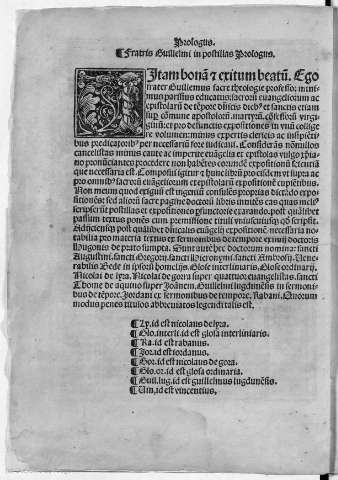 Prologus.
¶ Fratris Guilielmi in postillas Prologus.
Vitam bonã ⁊ exitum beatũ. Ego
frater Guillermus sacre theologie professor mini-
mus parisius educatus: sacrorũ euangeliorum ac
epistolarũ de tẽpore dieb⁹ dñicis ⁊ sanctis etiam
sup cõmune apostolorũ, martyrũ, cõfessorũ, virgi-
ginũ: et pro defunctis expositiones in vnũ collige
re volumen: minus expertis clericis ac incipiẽti
bus predicatorib⁹ per necessariũ fore iudicaui. Considerãs nõnullos
euangelistas minus caute ac imperite euangelia et epistolas vulgo
pronũciantes procedere non habẽtes eorundẽ expositionẽ
que necessaria est. Composui igitur
pro omnib⁹ sacrorũ euãgeliorum et epistolarũ expositionẽ cupientibus.
Non meum quod exiguũ est ingeniũ consulẽs proprias dictãdo expo-
sitiones: sed aliorũ sacre pagine doctorũ libris
scripserũt postillas et expositiones
passum textus ponẽs cum premissione tituli vniuscuiusq⁊ qd̃ scripsit.
Adijciensq⁊ post quãlibet dñicalis euãgelij expositionẽ necessaria no-
tabilia pro materia
lugonis de prato sumpta. Sunt autẽ hec doctorum nomina: sancti
Augustini. sancti Gregorij. sancti Hieronymi. sancti Ambrosij. Vene-
rabilis Bede in ipsorũ homelijs. Glose interlinearis. Glose ordinarij.
Nicolai de lyra. Nicolai de gorra super quattuor euangelistas. sancti
Thome de aquino super Joãnem. Guillelmi lugdunẽsis in sermoni-
bus de tẽpore. Jordani ex sermonibus de tempore. Rabani. Quorum
modus penes titulos abbreuiatos legendi talis est.
¶ Ly. id est nicolaus de lyra.
¶ Glo. interli. id est glosa interliniaris.
¶ Ra. id est rabanus.
¶ Jor. id est iordanus.
¶ Gor. id est nicolaus de gora.
¶ Glo. or. id est glosa ordinaria.
¶ Guil. lug. id est guillelmus lugdunẽsis.
¶ Uin. id est vincentius.